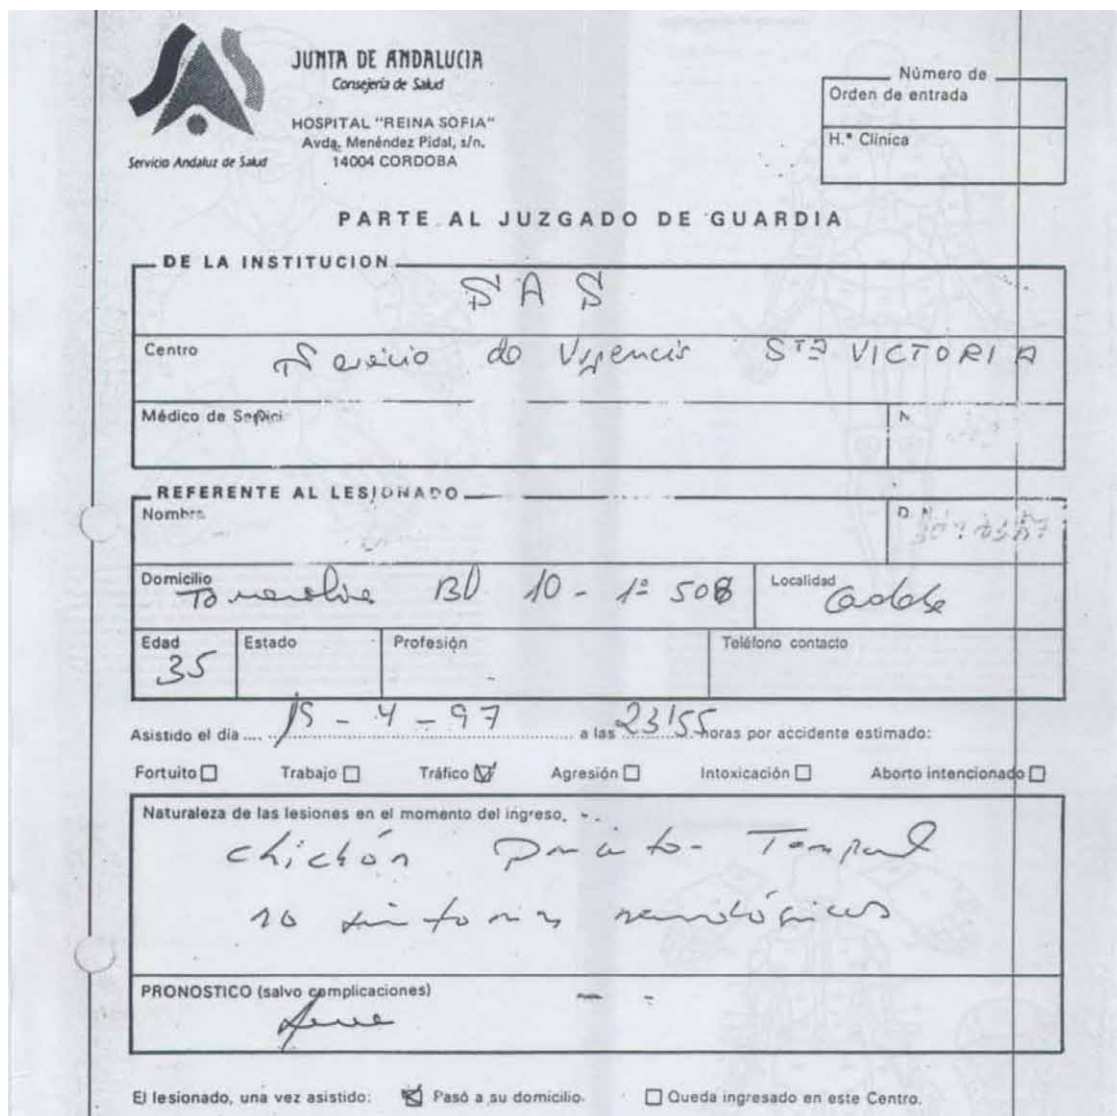 JUNTA DE ANDALUCIA
Consejería de Salud
HOSPITAL "REINA SOFIA"
Avda. Menéndez Pidal, s/n.
14004 CORDOBA
Servicio Andaluz de Salud
Número de
Orden de entrada
H.ª Clínica
PARTE AL JUZGADO DE GUARDIA
DE LA INSTITUCION
SAS
Centro Servicio de Urgencia STA VICTORIA
Médico de
REFERENTE AL LESIONADO
Nombre
Domicilio Bl 10 - 1º 508 Localidad
Edad 35 Estado Profesión Teléfono contacto
Asistido el día .... 15 - 4 - 97 a las 23'55 horas por accidente estimado:
Fortuito Trabajo Tráfico Agresión Intoxicación Aborto intencionado
Naturaleza de las lesiones en el momento del ingreso.
chichón Temporal
no síntomas neurológicos
PRONOSTICO (salvo complicaciones)
leve
El lesionado, una vez asistido: Pasó a su domicilio. Queda ingresado en este Centro.